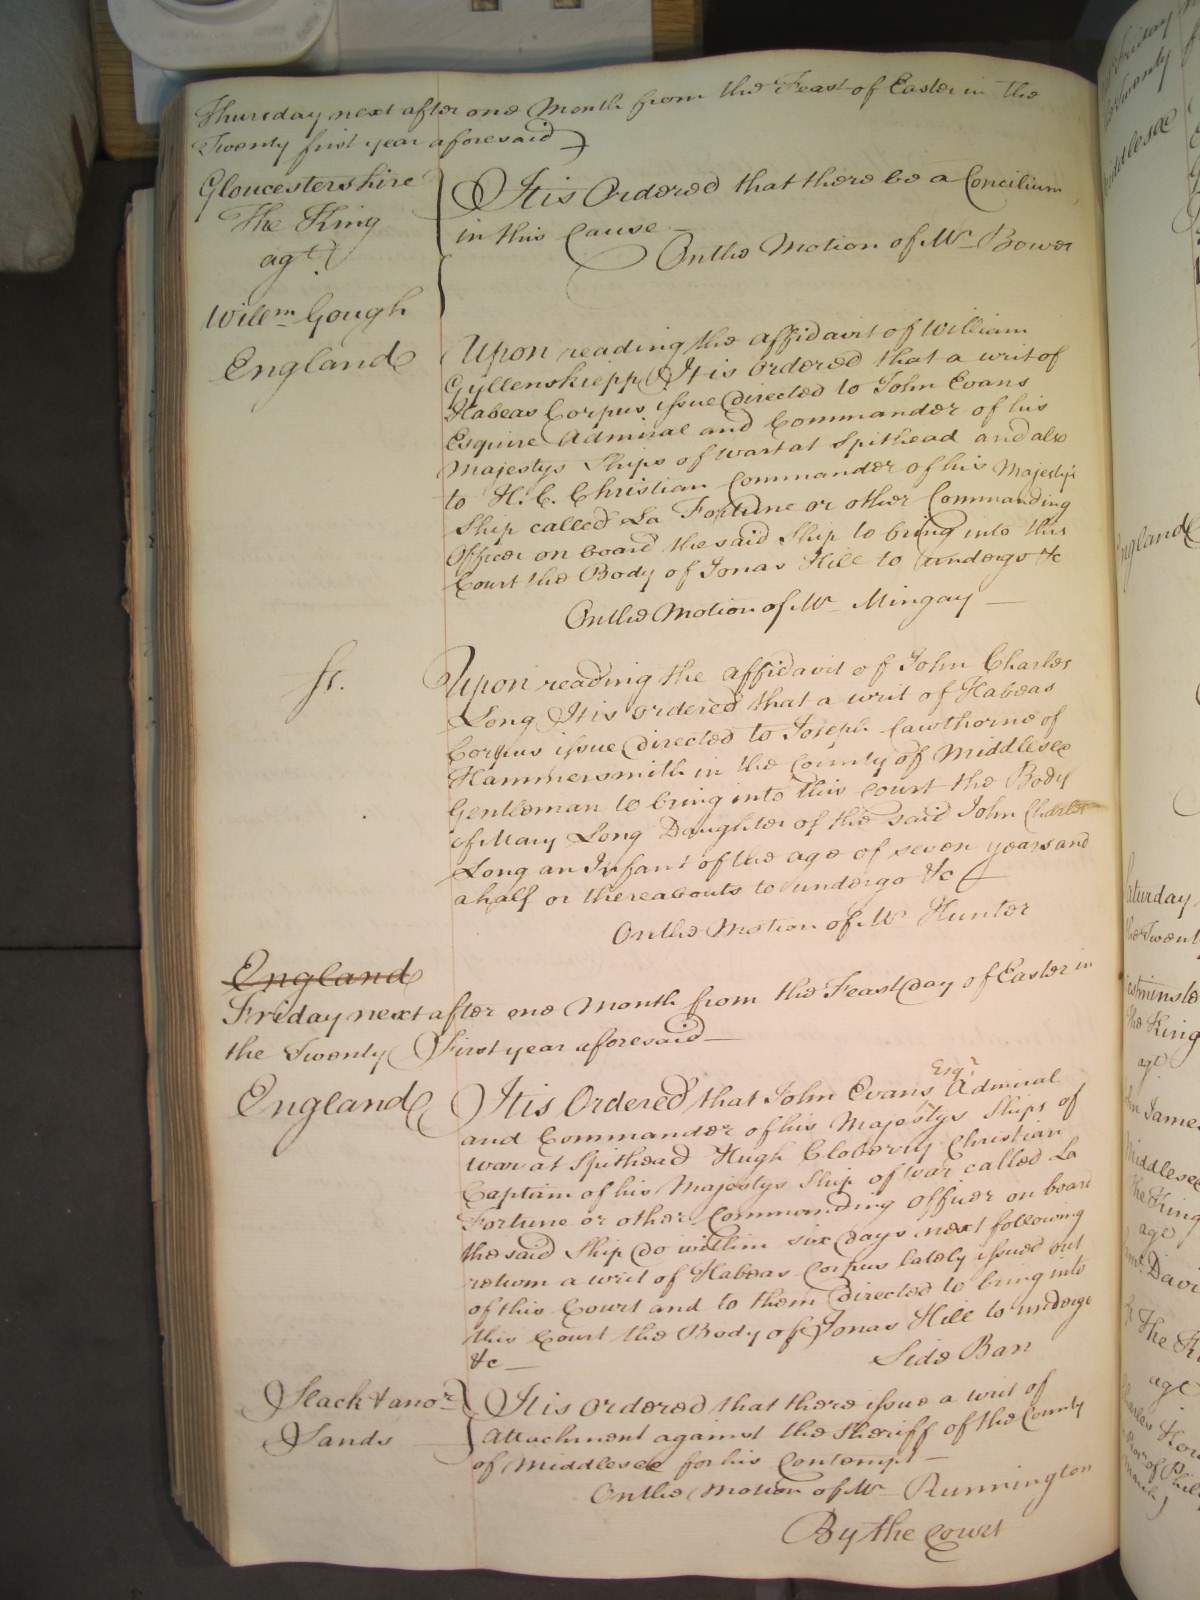 Thursday next after one Month from the Feast of Easter in the
Twenty first year aforesaid
Gloucestershire
The King
agt
Willm Gough
It is Ordered that there be a Concilium
in this Cause
On the Motion of Mr Bower
England
Upon reading the affidavit of William
Gyllenskiepp It is ordered that a writ of
Habeas Corpus issue directed to John Evans
Esquire Admiral and Commander of his
Majestys Ships of war at Spithead and also
to H. C. Christian Commander of his Majesty's
Ship called La Fortune or other Commanding
Officer on board the said Ship to bring into this
Court the Body of Jonas Hill to undergo &c
On the Motion of Mr Mingay
Ss.
Upon reading the affidavit of John Charles
Long It is ordered that a writ of Habeas
Corpus issue directed to Joseph Cawthorne of
Hammersmith in the County of Middlesex
Gentleman to bring into this Court the Body
of Mary Long Daughter of the said John Charles
Long an Infant of the age of seven years and
a half or thereabouts to undergo &c
On the Motion of Mr Hunter
England
Friday next after one Month from the Feast day of Easter in
the Twenty First year aforesaid
England
It is Ordered that John Evans Esqr Admiral
and Commander of his Majestys Ships of
war at Spithead Hugh Cloberry Christian
Captain of his Majestys Ship of War called La
Fortune or other Commanding officer on board
the said Ship do within six days next following
return a writ of Habeas Corpus lately issued out
of this Court and to them directed to bring into
this Court the Body of Jonas Hill to undergo
&c
Side Bar
Slack & anor
Sands
It is ordered that there issue a writ of
attachment against the Sheriff of the County
of Middlesex for his Contempt
On the Motion of Mr Runnington
By the Court